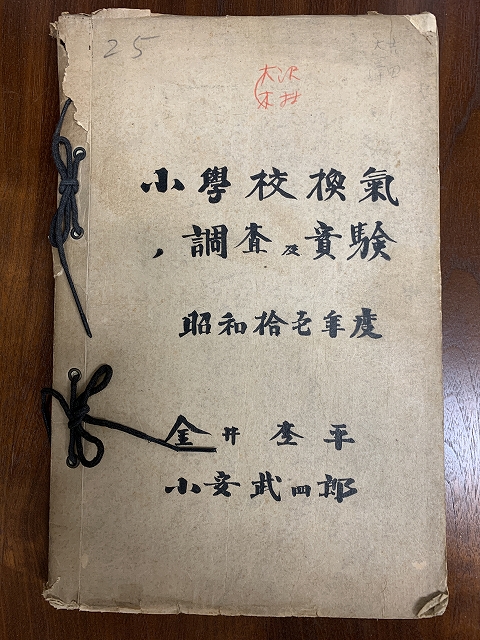 25
大沢
木井
小學校換氣
ノ調査及實験
昭和拾七年度
金井 平
小安武四郎